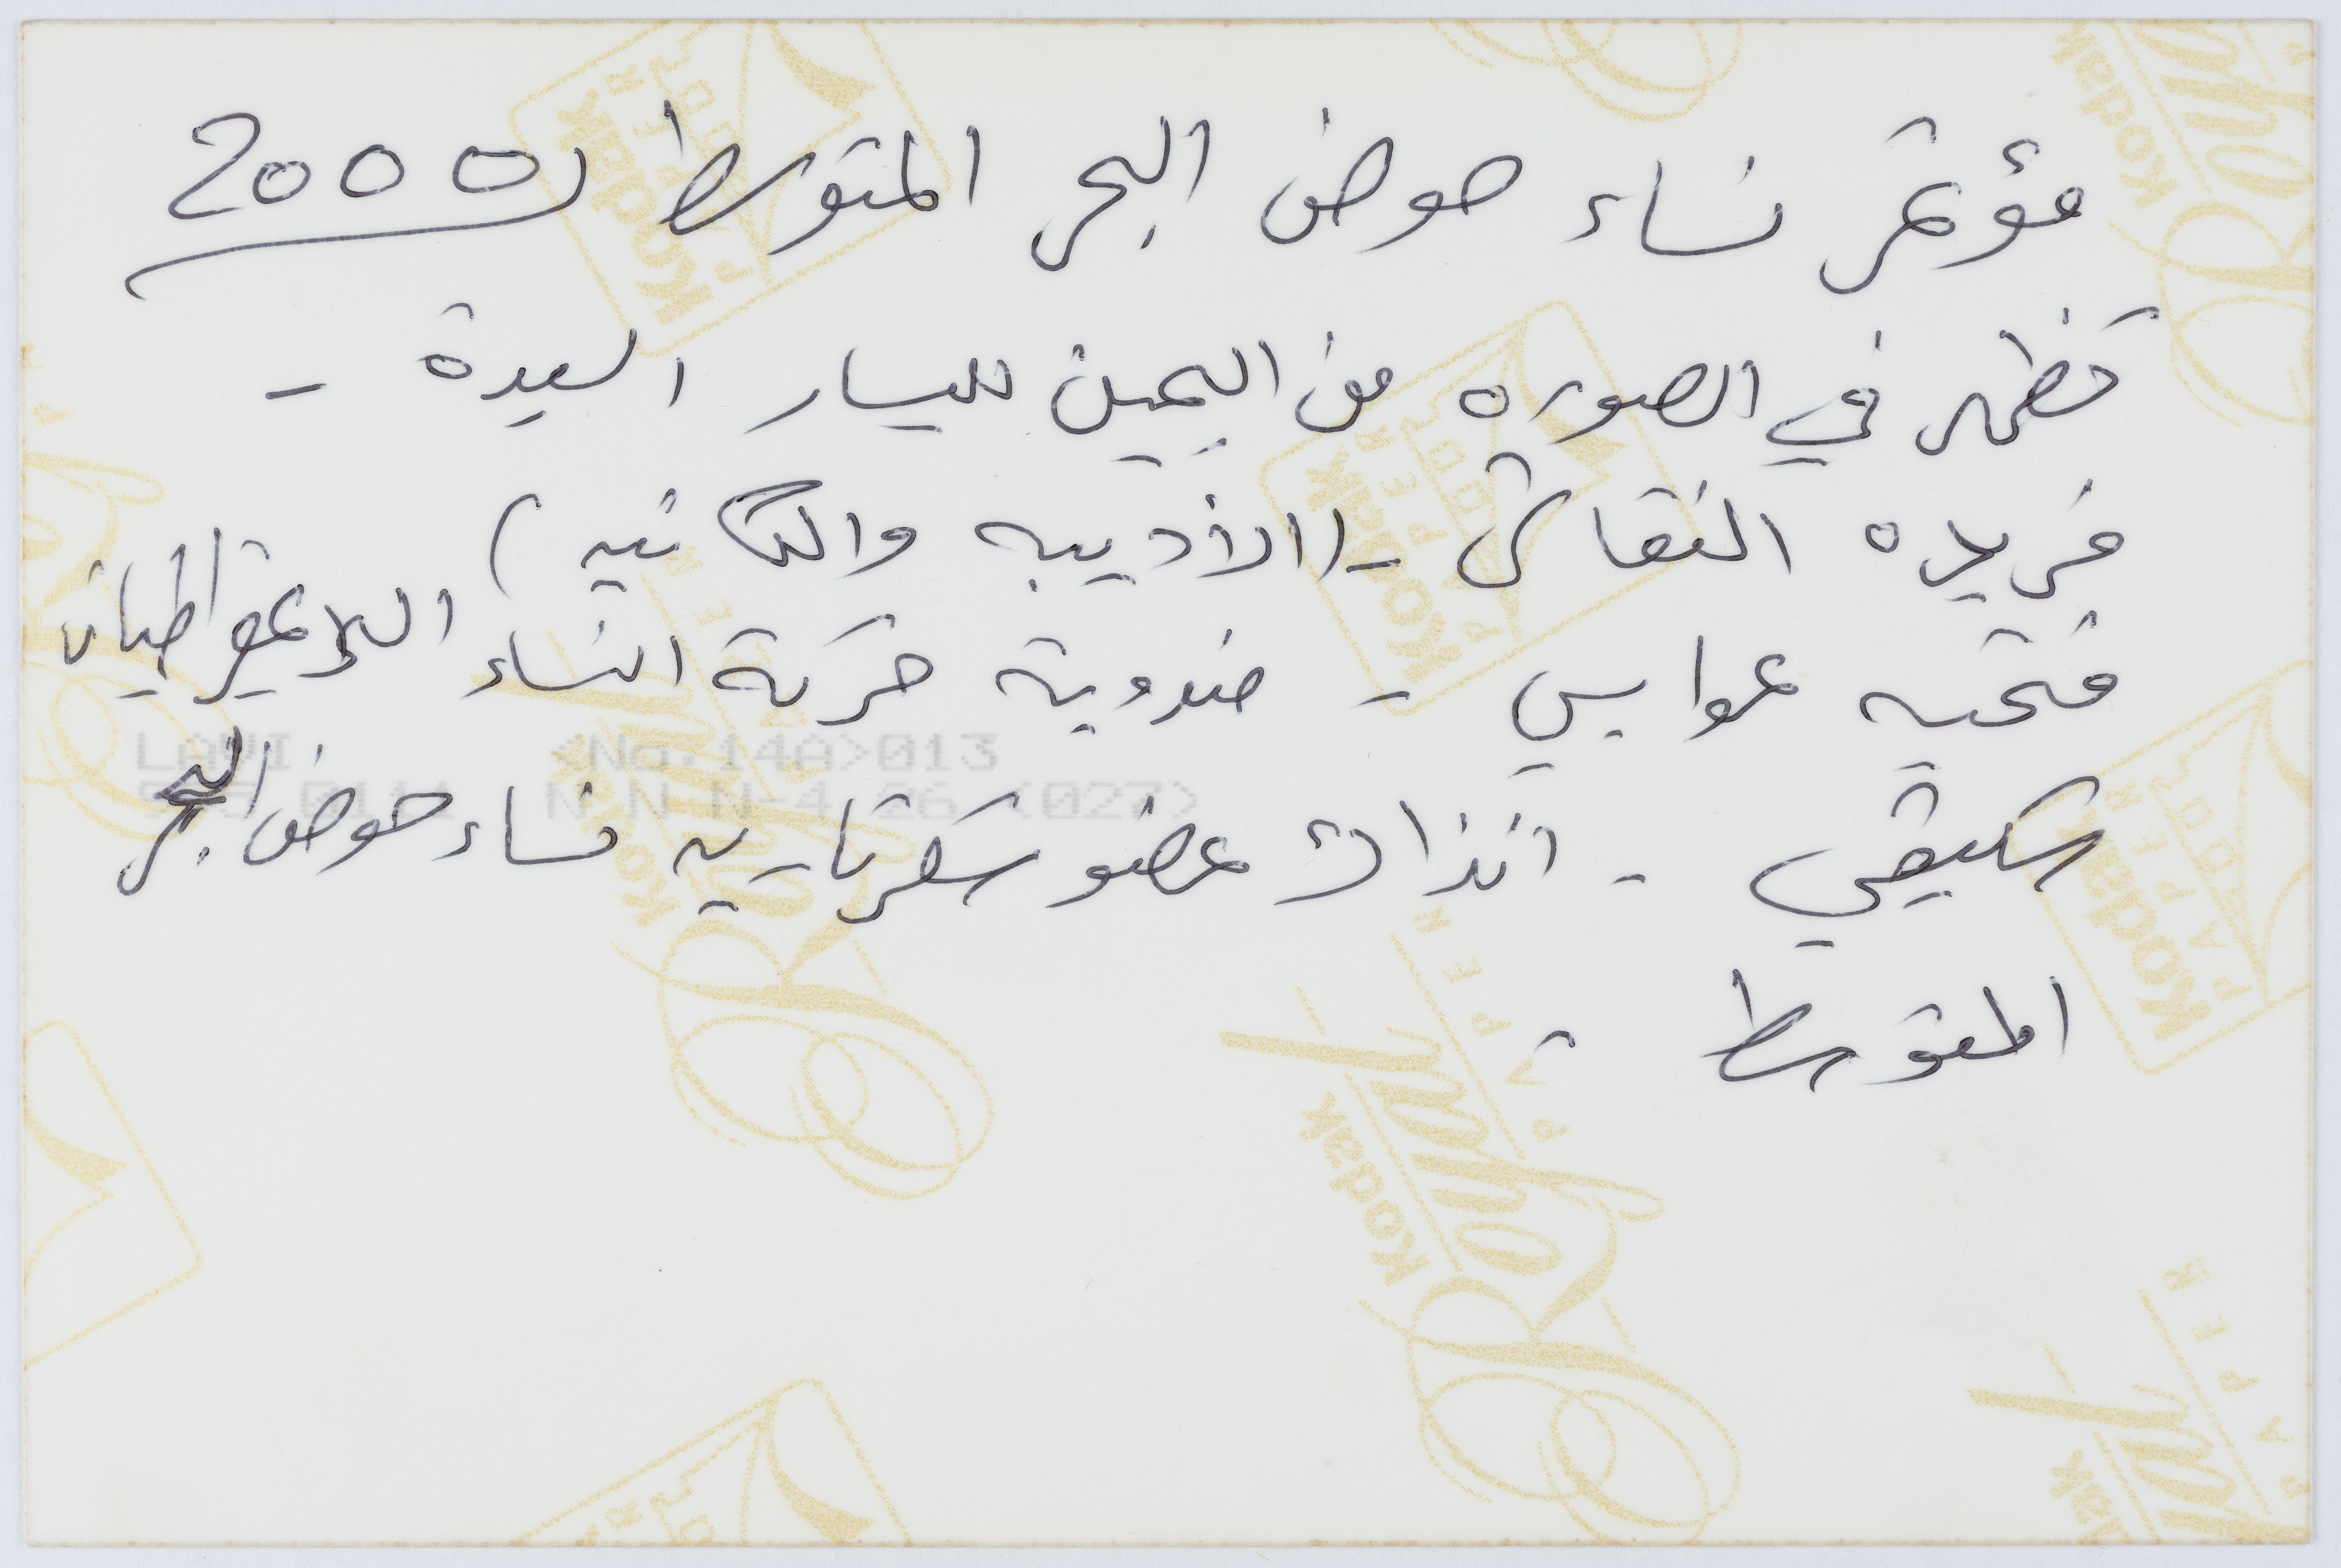 مؤتمر نساء حوض البحر المتوسط 2000
تظهر في الصوره من اليمين لليسار السيدة -
فريده النقاش - (الأديبه والكاتبه)
فتحيه عوايس - مندوبة حركة النساء الديمقراطيات
سكيبقي - انذاك عضو سكرتاريه نساء حوض البحر
المتوسط -
LAVI <No.14A>013
N N N-4 26 (027)
Kodak Royal PAPER